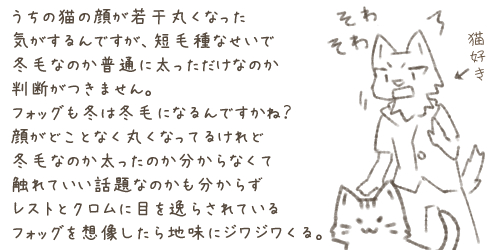 うちの猫の顔が若干丸くなった
気がするんですが、短毛種なせいで
冬毛なのか普通に太っただけなのか
判断がつきません。
フォッグも冬は冬毛になるんですかね？
顔がどことなく丸くなってるけれど
冬毛なのか太ったのか分からなくて
触れていい話題なのかも分からず
レストとクロムに目を逸らされている
フォッグを想像したら地味にジワジワくる。
そわ
そわ
猫好き